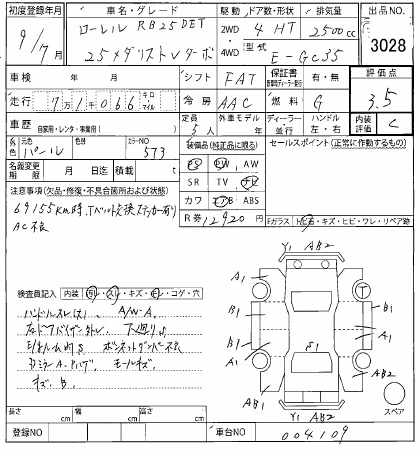 初度登録年月 車名・グレード 駆動 ドア数・形状 排気量 出品NO.
9/7月 ローレル RB25DET 2WD 4 HT 2500cc 3028
25メダリストVターボ 4WD 型式 E-GC35
車検 年 月 シフト FAT 保証書 有・無 評価点
走行 71066 キロ マイル 冷房 AAC 燃料 G 3.5
車歴 自家用・レンタ・事業用( ) 定員 5人 外車モデル 年 ディーラー 並行 ハンドル 左・右 内装評価 C
外色 元色 パール 色替 カラーNO 573 装備品(純正品に限る) セールスポイント(正常に動作するもの)
名義変更期限 月 日迄 積載 t PS PW AW
注意事項(欠品・修復・不具合箇所および状態) SR TV ナビ
69155km時、Tベルト交換ステッカー有り カワ エアB ABS
AC不良 R券 12920円
Fガラス ト石・キズ・ヒビ・ワレ・リペア跡
Y1 AB2
A1 A1
検査員記入 内装 汚レ・スレ・キズ・コゲ・穴
ハンドルスレ(大)、A/W-A B1 B1
下廻りS A1 S1 A1
E/ルーム内S ボンネットダンパー不良
モールキズ AB2
キズ、B AB1
Y1 AB2 スペア
長さ cm 幅 cm 高さ cm
登録NO 車台NO 004109